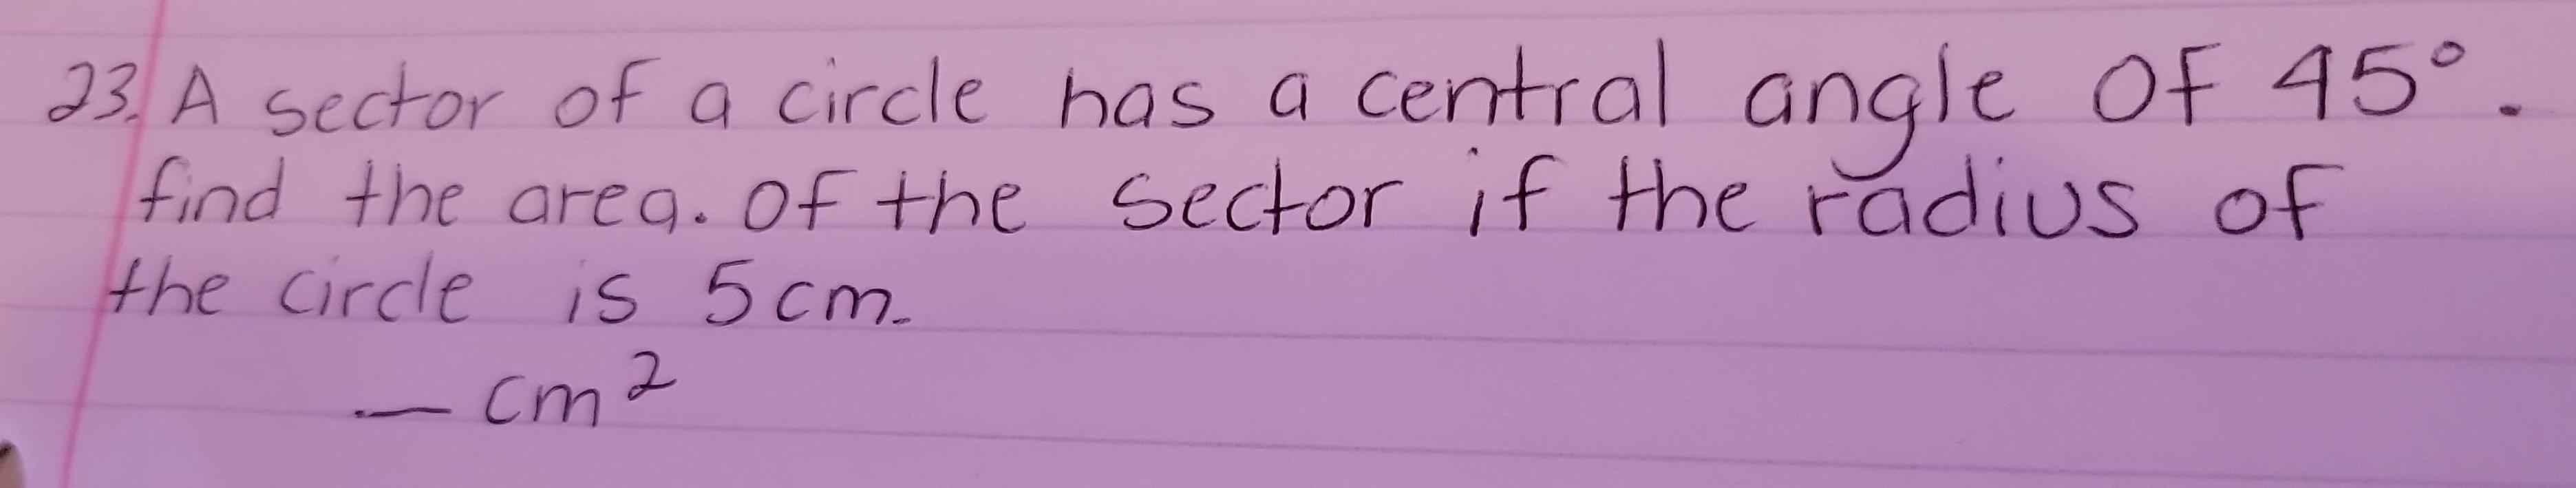 23. A sector of a circle has a central angle of 45°.
find the area. of the sector if the radius of
the circle is 5cm.
— cm²